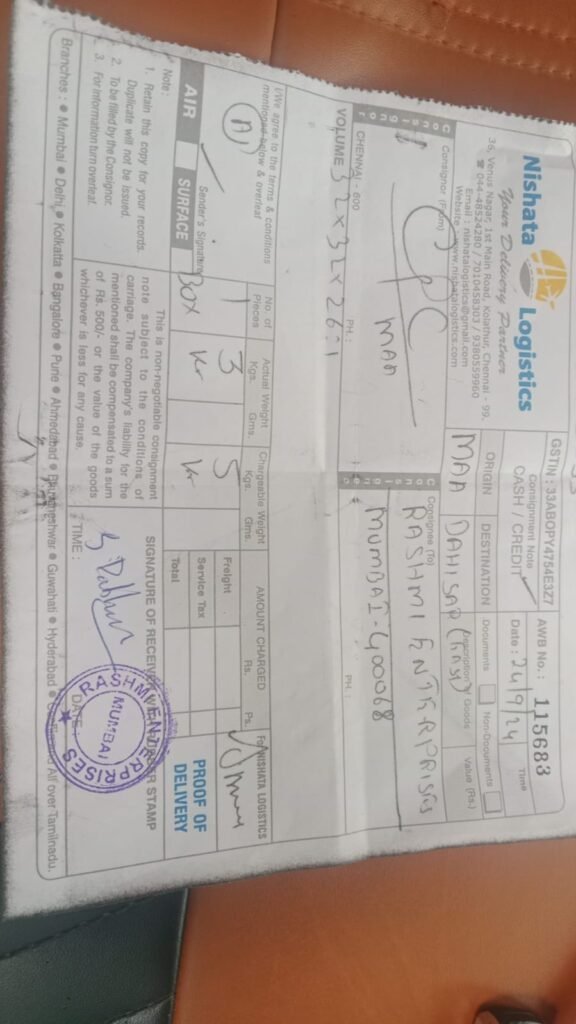 Nishata Logistics
Your Delivery Partner
36, Venus Nagar, 1st Main Road, Kolathur, Chennai - 99.
☎ 044-48524280 / 7010458303 / 9380559960
Email : nishatalogistics@gmail.com
Website : www.nishatalogistics.com
GSTIN : 33ABOPY4754E3Z7
Consignment Note
CASH / CREDIT
AWB No. : 115683
Date : 24/9/24
Time
ORIGIN
MAA
DESTINATION
DAHISAR (EAST)
Documents
Non-Documents
Description of Goods
Value (Rs.)
Consignor (From)
Consignor
CPC
MAA
CHENNAI - 600
PH. :
VOLUME 32x32x26:1
Consignee (To)
Consignee
RASHMI ENTERPRISES
MUMBAI-400068
PH. :
I/We agree to the terms & conditions
mentioned below & overleaf
Sender's Signature
AIR
SURFACE
No. of Pieces
1
Box
Actual Weight
Kgs.
Gms.
3
Kr
Chargeable Weight
Kgs.
Gms.
5
Kr
AMOUNT CHARGED
Rs.
Ps.
Freight
Service Tax
Total
For NISHATA LOGISTICS
PROOF OF
DELIVERY
Note :
1. Retain this copy for your records.
Duplicate will not be issued.
2. To be filled by the Consignor.
3. For Information turn overleaf.
This is non-negotiable consignment
note subject to the conditions of
carriage. The company's liability for the
mentioned shall be compensated to a sum
of Rs. 500/- or the value of the goods
whichever is less for any cause.
SIGNATURE OF RECEIVER STAMP
TIME :
DATE :
RASHMI ENTERPRISES
MUMBAI
Branches : ● Mumbai ● Delhi ● Kolkatta ● Bangalore ● Pune ● Ahmedabad ● Bhubneshwar ● Guwahati ● Hyderabad ● All over Tamilnadu.